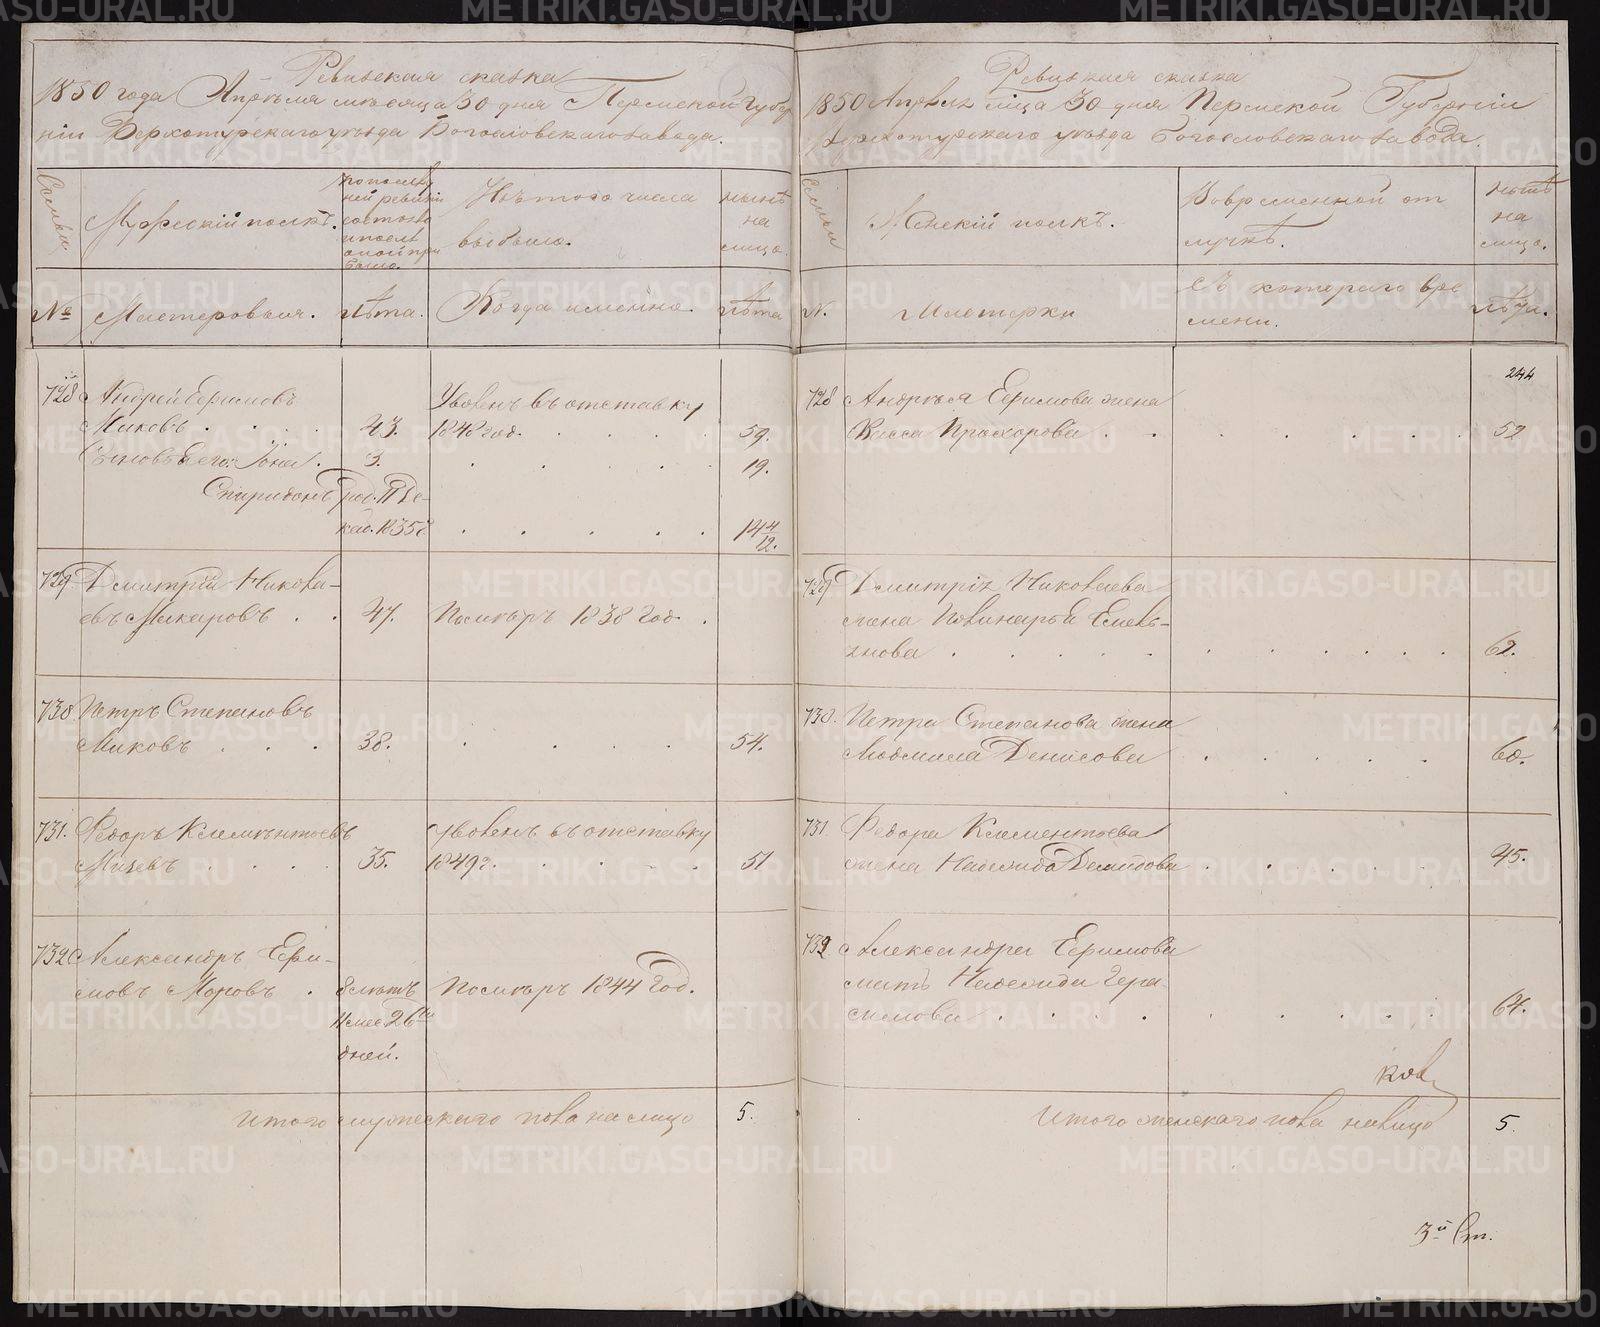 Ревизская сказка
1850 года Апрѣля мѣсяца 30 дня Пермской Губер
ніи Верхотурскаго уѣзда Богословскаго завода.
Семьи
Мужескій полкъ.
по послѣд
ней ревизіи
состояло
и послѣ
оной при
было.
Изъ того числа
выбыло.
нынѣ
на
лицо
№
Мастеровыя.
лѣта.
Когда именно.
лѣта
728 Андрей Ефимовъ
Миковъ . . . . 43.
Уволенъ въ отставку
1848 год. . . . . 59.
Сыновья его: Іона . 3. . . . . . 19.
Спиридонъ род. 11 Де-
каб. 1835 г. . . . . . 14 4/12.
729. Дмитрій Никола-
евъ Макаровъ . . 47. Помѣръ 1838 год. .
730. Петръ Степановъ
Миковъ . . . 38. . . . . 54.
731. Федоръ Клементьевъ
Мичевъ . . . 35.
Уволенъ въ отставку
1849 г. . . . . 51
732 Александръ Ефи-
мовъ Моровъ . 8 лѣтъ Помѣръ 1844 год.
11 мес. 26ти
дней.
Итого мужескаго пола на лицо 5.
Ревизская сказка
1850 Апрѣля м̃ца 30 дня Пермской Губерніи
Верхотурскаго уѣзда Богословскаго завода.
Семьи
Женскій полкъ.
Во временной от
лучкѣ.
нынѣ
на
лицо.
N.
Мастерки
Съ котораго вре
мени.
лѣта.
244
728 Андрея Ефимова жена
Васса Прохорова . . . . . . . 52
729 Дмитрія Николаева
жена Повинарья Емель-
янова . . . . . . . . . . 62.
730. Петра Степанова жена
Людмила Денисова . . . . . 60.
731 Федора Клементьева
жена Надежда Демидова . . . . . 45.
732 Александра Ефимова
мать Надежда Гера-
симова . . . . . . . . . 64.
Итого женскаго пола налицо 5.
3й Ст.